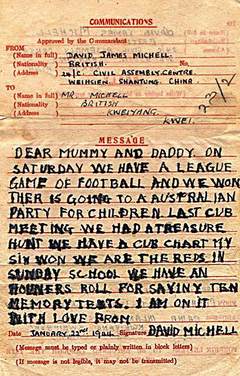 COMMUNICATIONS
Approved by the Commandant:
FROM
(Name in full) DAVID JAMES MICHELL
(Nationality) BRITISH.
(Address CIVIL ASSEMBLY. CENTRE.
WEIHSIEN SHANTUNG. CHINA
TO
(Name in full) MR. MICHELL
(Nationality) BRITISH
(Address KWEIYANG.
KWEI.
MESSAGE
DEAR MUMMY AND DADDY. ON
SATURDAY WE HAVE A LEAGUE
GAME OF FOOTBALL AND WE WON
THER IS GOING TO A AUSTRALIAN
PARTY FOR CHILDREN LAST CUB
MEETING WE HAD A TREASURE
HUNT WE HAVE A CUB CHART MY
SIX WON WE ARE THE REDS IN
SUNDAY SCHOOL WE HAVE AN
HONNERS ROLL FOR SAYING TEN
MEMORY TEXTS. I AM ON IT
WITH LOVE FROM
Date JANUARY 22ND 1944 Signature DAVID MICHELL
(Message must be typed or plainly written in block letters)
(If message is not legible, it may not be transmitted)